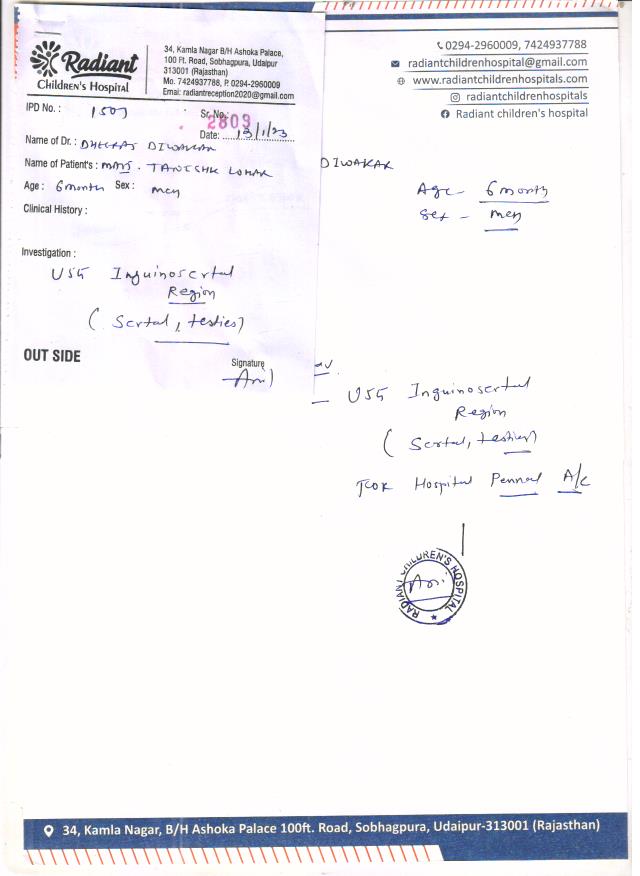 Radiant
Children's Hospital
34, Kamla Nagar B/H Ashoka Palace,
100 Ft. Road, Sobhagpura, Udaipur
313001 (Rajasthan)
Mo. 7424937788, P. 0294-2960009
Emai: radiantreception2020@gmail.com
IPD No. : 1507
Sr. No.: 2809
Date: 13/1/23
Name of Dr. : DHEERAJ DIWAKAR
Name of Patient's : MAS. TANISHK LOHAR
Age : 6 month Sex : men
Clinical History :
Investigation :
USG Inguinoscrtal
Region
( Scrtal, testies)
OUT SIDE
Signature
0294-2960009, 7424937788
radiantchildrenhospital@gmail.com
www.radiantchildrenhospitals.com
radiantchildrenhospitals
Radiant children's hospital
DIWAKAR
Age - 6 month
Sex - men
USG Inguinoscrtal
Region
( Scrtal, testies)
Hospital A/c
RADIANT CHILDREN'S HOSPITAL
34, Kamla Nagar, B/H Ashoka Palace 100ft. Road, Sobhagpura, Udaipur-313001 (Rajasthan)